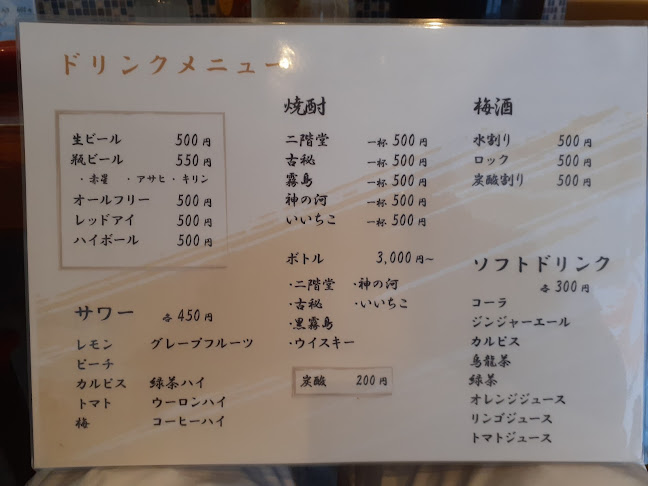 ドリンクメニュー
生ビール 500円
瓶ビール 550円
・赤星 ・アサヒ・キリン
オールフリー 500円
レッドアイ 500円
ハイボール 500円
サワー 各450円
レモン グレープフルーツ
ピーチ
カルピス 緑茶ハイ
トマト ウーロンハイ
梅 コーヒーハイ
焼酎
二階堂 一杯500円
古秘 一杯500円
霧島 一杯500円
神の河 一杯500円
いいちこ 一杯500円
ボトル 3,000円~
・二階堂 ・神の河
・古秘 ・いいちこ
・黒霧島
・ウイスキー
炭酸 200円
梅酒
水割り 500円
ロック 500円
炭酸割り 500円
ソフトドリンク
各300円
コーラ
ジンジャーエール
カルピス
烏龍茶
緑茶
オレンジジュース
リンゴジュース
トマトジュース